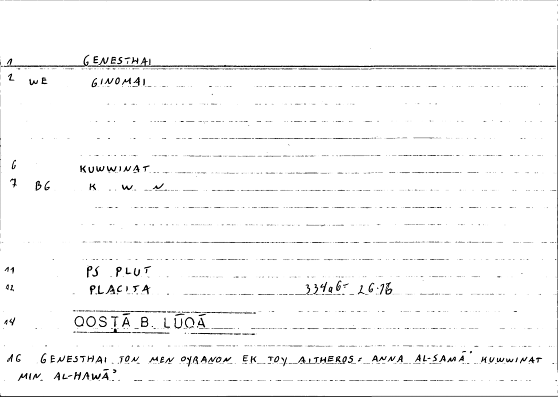 1 GENESTHAI
2 WE GINOMAI
6 KUWWINAT
7 BG K W N
11 PS PLUT
02 PLACITA 334a6- 26.18
14 QOSṬĀ B. LŪQĀ
16 GENESTHAI TON MEN OYRANON EK TOY AITHEROS = ANNA AL-SAMĀʾ KUWWINAT
MIN AL-HAWĀʾ.